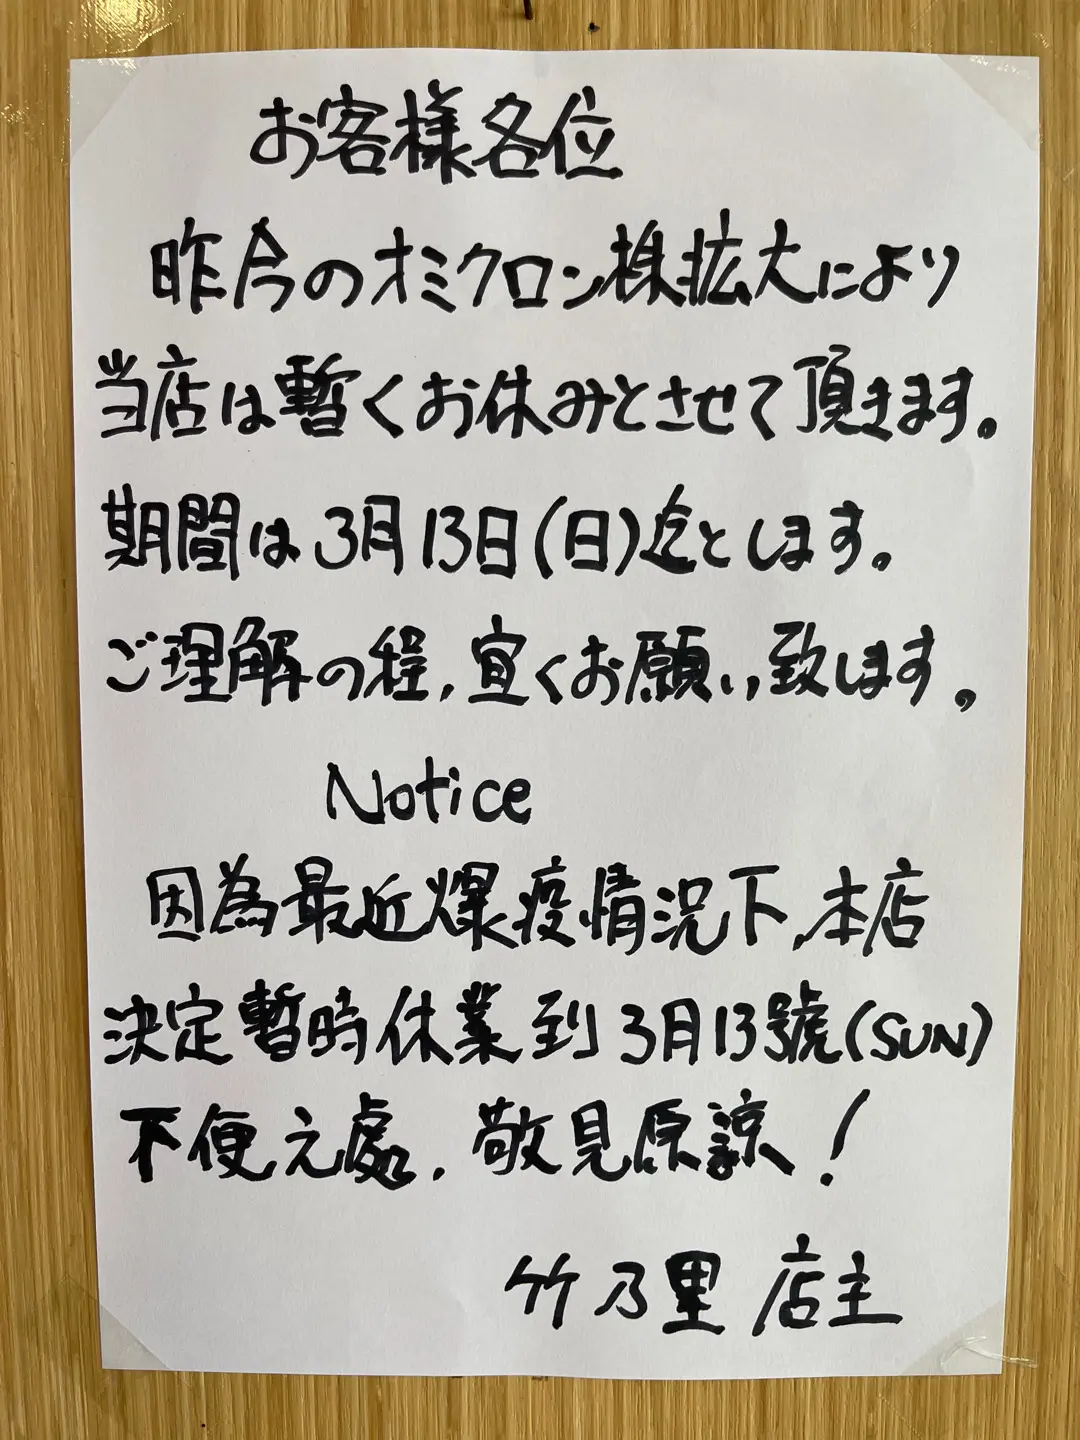 お客様各位
昨今のオミクロン株拡大により
当店は暫くお休みとさせて頂きます。
期間は3月13日(日)迄とします。
ご理解の程、宜くお願い致します。
Notice
因為最近爆疫情況下,本店
決定暫時休業到3月13號(SUN)
不便之處,敬見原諒!
竹乃里 店主